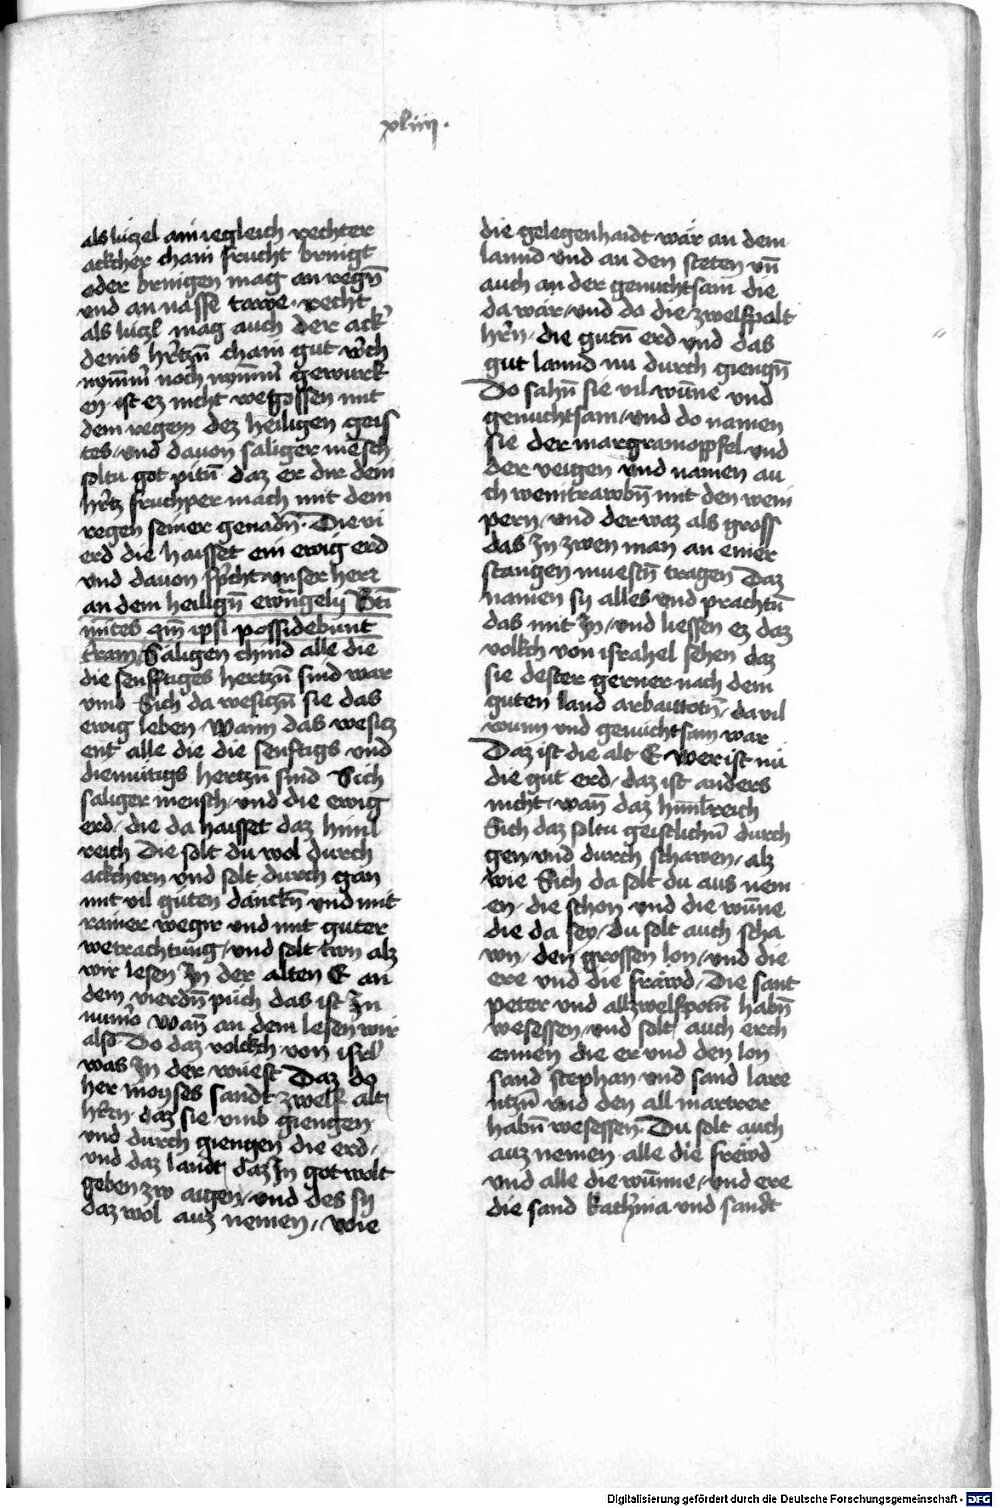 xliiij.
als lüczel ain iegleich rechter
ackcher chain frucht bringt
oder bringen mag an regn̄
vnd an nasse tawe / recht
als lüczl mag auch der ack'
deins hr̄tzn̄ chain gut w'ch
nym̄m' noch nym̄m' gewurk
en ist ez nicht wegossen mit
dem regem dez heiligen geis
tes / vnd dauon saliger mēsch
soltu got pitn̄ daz er dir dein
hr̄tz fruchper mach mit dem
regen seiner genadn̄. Die vi
erd die haisset ein ewig erd
vnd dauon sp'cht vnser herr
an dem heilign̄ ewn̄gelij Bt̄i
mites qm̄ ipsi possidebunt
t'ram / Saligen chind alle die
die senfftiges hertzn̄ sind war
vmb Sich da wesiczn̄ sie das
ewig leben / Wann das wesicz
ent alle die die senftigs vnd
diemütigs hertzn̄ sind Sich
saliger mensch / vnd die ewig
erd / die da haisset daz himl
reich Die solt du wol durch
ackchern vnd solt durch gan
mit vil guten dänckn̄ vnd mit
rainer wegir vnd mit guter
wetrachtung / vnd solt twn alz
wir lesen In der alten E an
dem vierdn̄ püch das ist In
num̄o Wan̄ an dem lesen wir
also Do daz volckch von isrl'
was In der wüest Daz do
her moyses sandt zwelf alt
hr̄rn daz sie vmb giengen
vnd durch giengen die erd /
vnd daz landt daz In got wolt
geben zw aigen / vnd des sy
daz wol auz nemen / wie
die gelegenhaidt wär an dem
lannd vnd an den steten vn̄
auch an der genuchtsam die
da wär / vnd do die zwelfpolt
hr̄n / die gutn̄ erd vnd das
gut lannd nu durch giengn̄
Do sahn̄ sie vil wūne vnd
genuchtsam / vnd do namen
sie der margramopfel vnd
der veigen vnd namen au
ch weintrawbn̄ mit den wein
pern / vnd der waz als gross
das In zwen man an einer
stangen muestn̄ tragen Daz
namen sy alles vnd prachtn̄
das mit In / vnd liessen ez daz
volkch von israhel sehen daz
sie dester gerner nach dem
guten land arbaittotn̄ / da vil
wunn vnd genuchtsam war
Daz ist die alt E wer ist nü
die gut erd / daz ist anders
nicht / wan̄ daz himlreich
Sich daz soltu geistlichn̄ durch
gen / vnd durch schawen / alz
wie Sich da solt du aus nem
en / die schon vnd die wūne
die da sey / du solt auch scha
wn / den grossen lon / vnd die
ere vnd die fräwd / Die sant
peter vnd all zwelfpotn̄ habn̄
wesessen / vnd solt auch erch
ennen die er vnd den lon
sand stephan vnd sand lare
ntzn̄ vnd den all martrer
habn̄ wesessen. Du solt auch
auz nemen alle die frewd
vnd alle die wūnne / vnd ere
die sand kathr̄ina vnd sandt
Digitalisierung gefördert durch die Deutsche Forschungsgemeinschaft - DFG